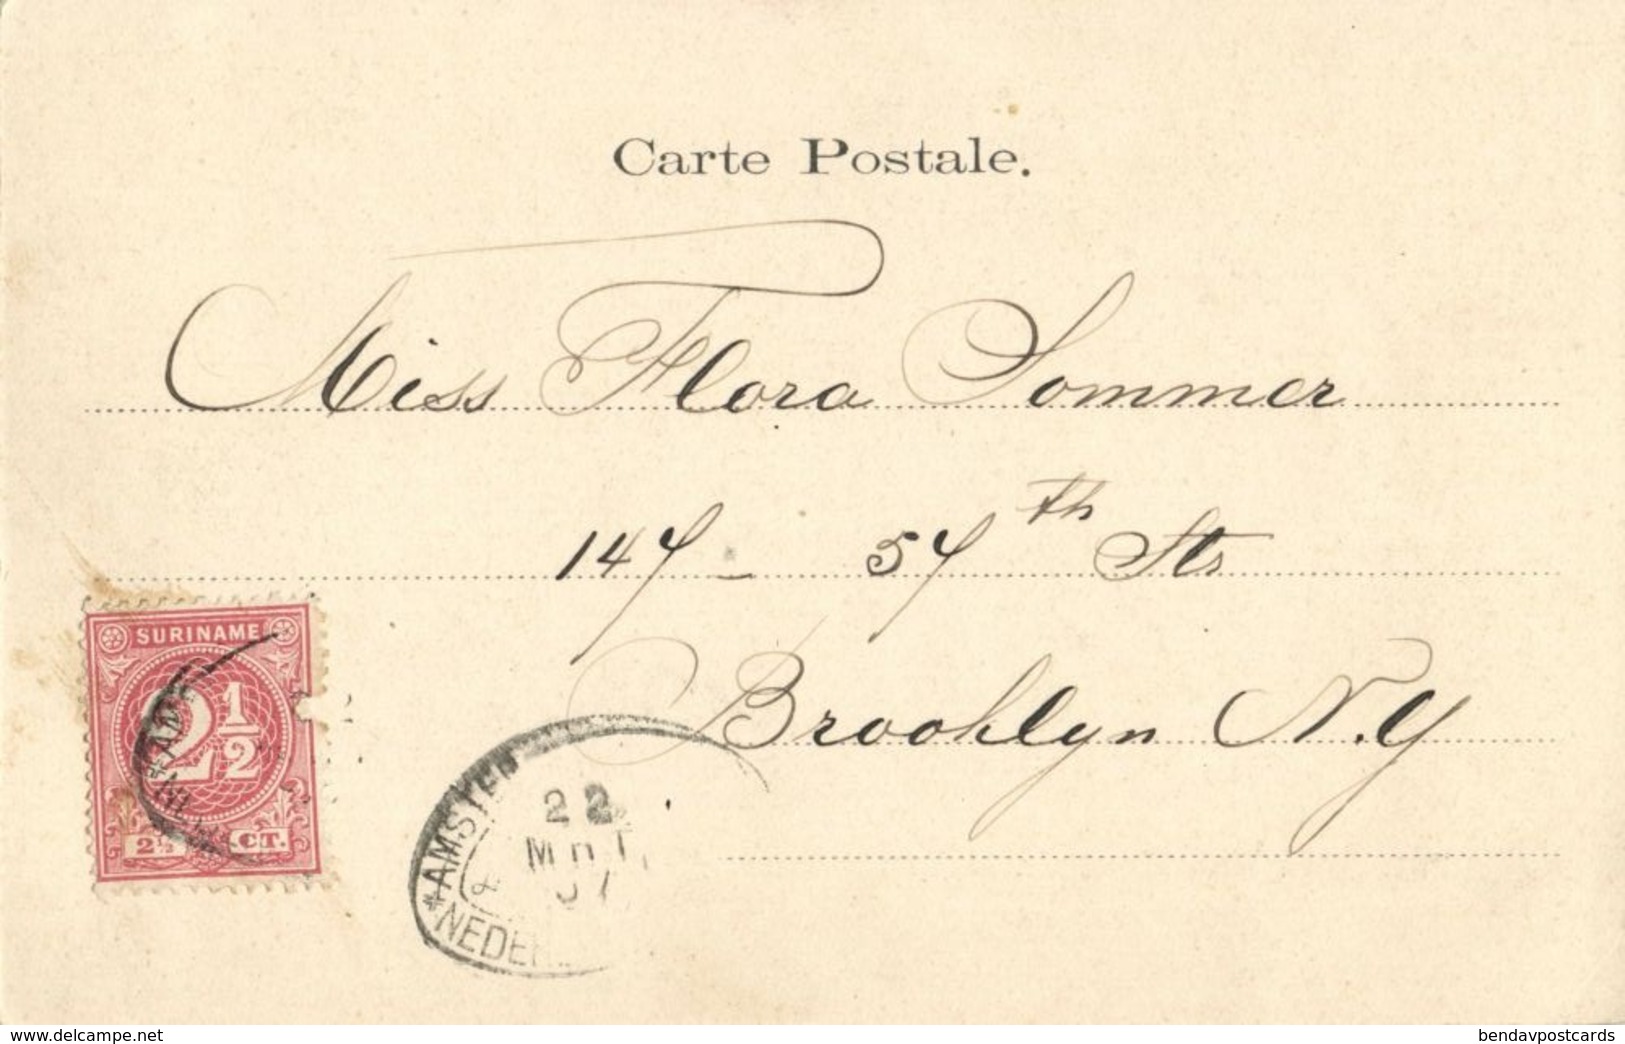 Carte Postale.
Miss Flora Sommer
147 – 57th Str
Brooklyn N.Y
SURINAME
2 1/2
2½ CT.
AMST
NED
*AMSTER
22
MRT
07
NEDER
www.delcampe.net
bendavpostcards